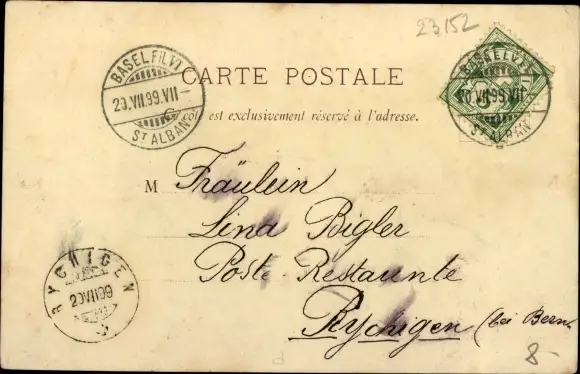 23152
BASEL FIL. VI
20.VII.99.VII-
ST ALBAN
CARTE POSTALE
Ce côté est exclusivement réservé à l'adresse.
BASEL FIL. VI
20.VII.99.VII-
ST ALBAN
M Fräulein
Lina Bigler
Poste Restaunte
Rychigen (bei Bern.
RYCHIGEN
20VII99
8-